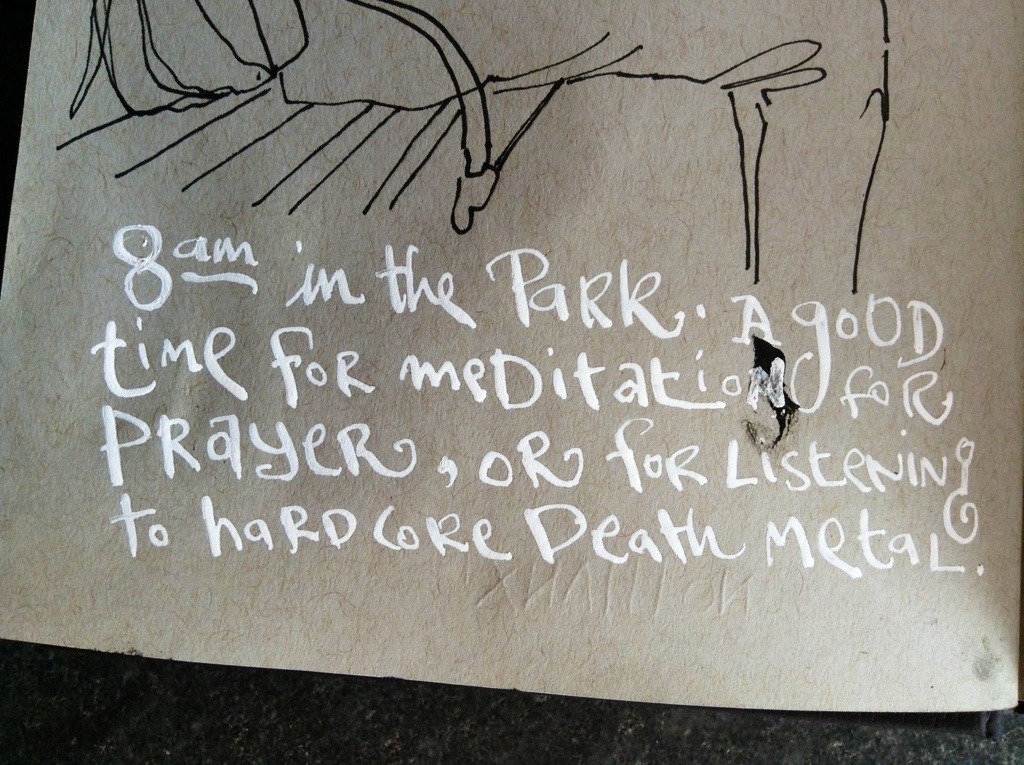 8am in the Park. A good
time for meditation for
prayer, or for Listening
to hardcore Death Metal.